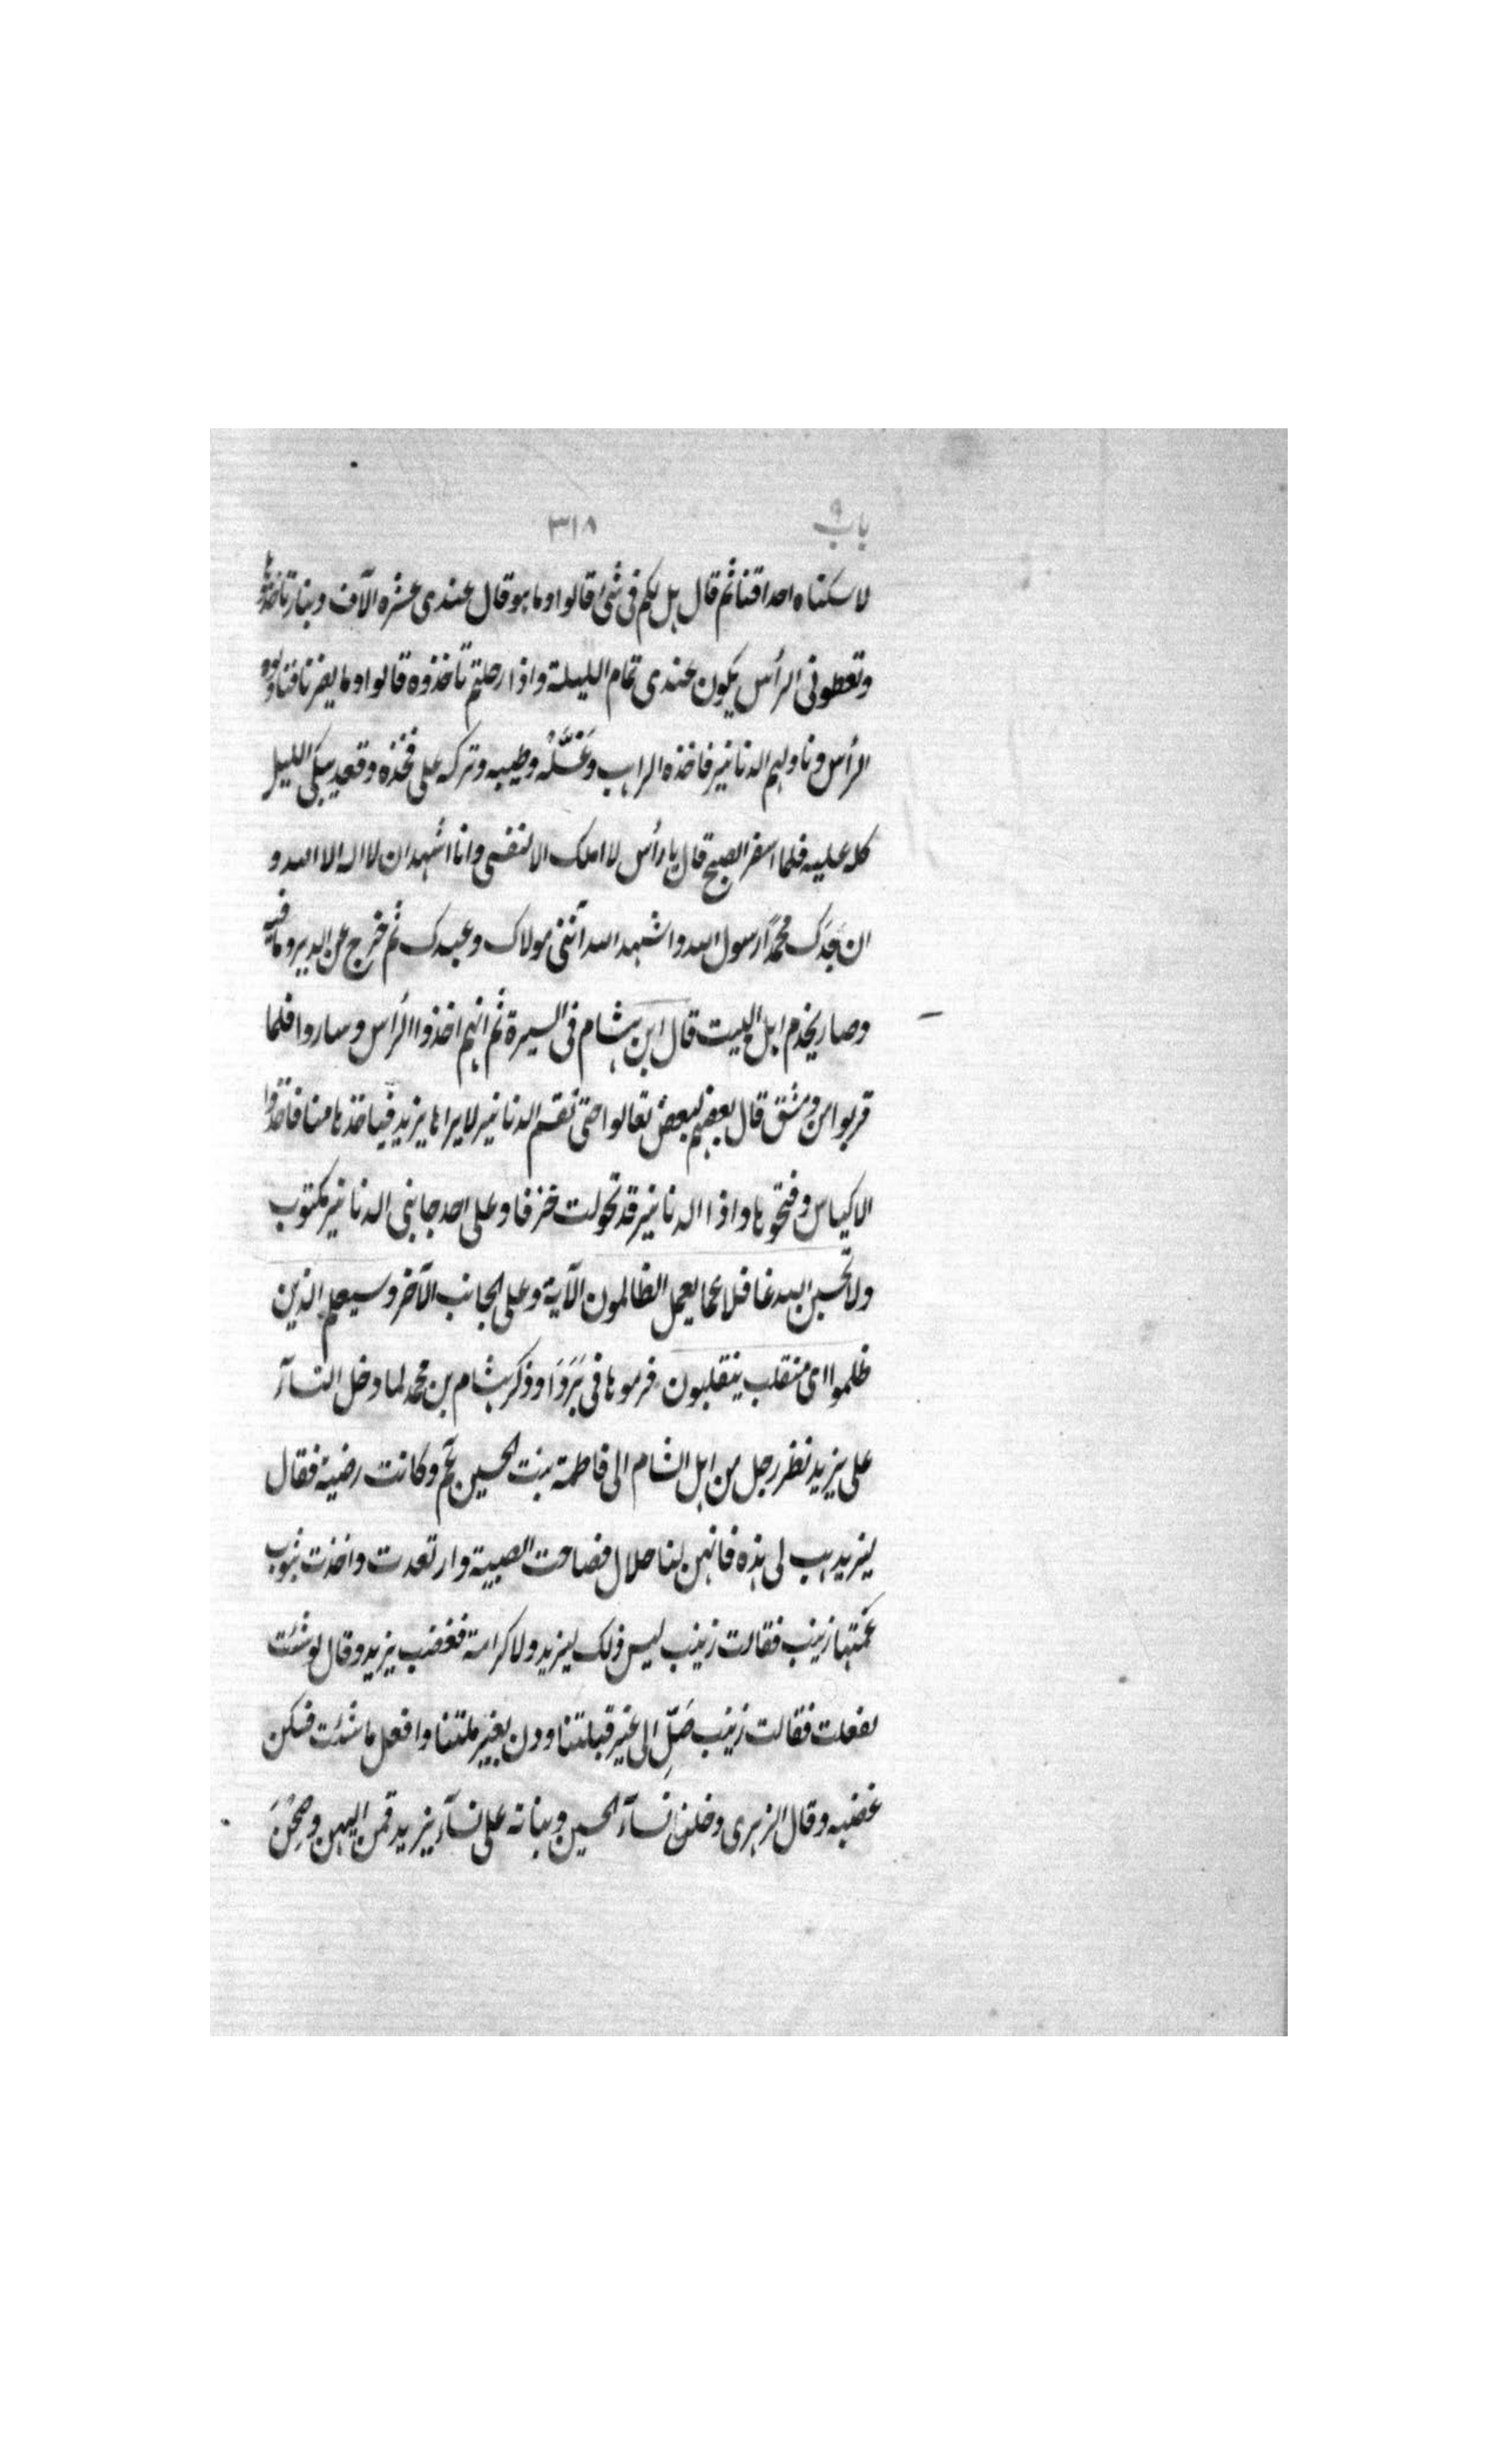 باب ٩
٣١٨
لاسكناه احداقنا ثم قال هل لكم فى شئ قالوا وما هو قال عندى عشرة الآف دينار تأخذوها
وتعطونى الرأس يكون عندى تمام الليلة واذا رحلتم تأخذوه قالوا وما يضرنا فناولوه
الرأس وناولهم الدنانير فاخذه الراهب وغَسَّلَهُ وطيبه وتركه على فخذه وقعد يبكى الليل
كله عليه فلما اسفر الصبح قال يا رأس لا املك الا نفسى وانا اشهد ان لا اله الا الله و
ان جدَك محمدًا رسول الله واشهد الله أننى مولاك وعبدك ثم خرج عن الدير وما فيه
وصار يخدم اهل البيت قال ابن هشام فى السيرة ثم انهم اخذوا الرأس وساروا فلما
قربوا من دمشق قال بعضهم لبعض تعالوا حتى نقسم الدنانير لا يراها يزيد فيأخذها منا فاخذوا
الاكياس وفتحوها واذا الدنانير قد تحولت خزفا وعلى احد جانبى الدنانير مكتوب
ولا تحسبن الله غافلا عما يعمل الظالمون الآية وعلى الجانب الآخر وسيعلم الذين
ظلموا اى منقلب ينقلبون فرموها فى بَرَدَا وذكر هشام بن محمد لما دخل النسآء
على يزيد نظر رجل من اهل الشام الى فاطمة بنت الحسين وكانت رضية فقال
ليزيد هب لى هذه فانهن لنا حلال فصاحت الصبية وارتعدت واخذت بثوب
عمتها زينب فقالت زينب ليس ذلك ليزيد ولا كرامة فغضب يزيد وقال لو شئت
لفعلت فقالت زينب صَلِّ الى غير قبلتنا ودن بغير ملتنا وافعل ما شئت فسكن
غضبه وقال الزهرى دخلن نسآء الحسين وبناته على نسآء يزيد قمن اليهن وصِحْنَ